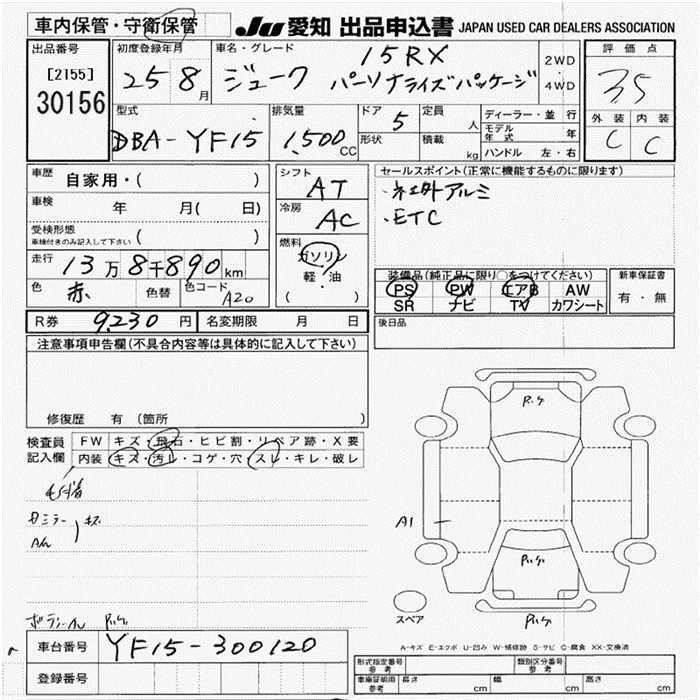 車内保管・守衛保管
JU 愛知 出品申込書 JAPAN USED CAR DEALERS ASSOCIATION
出品番号
[2155]
30156
初度登録年月
25 8月
車名・グレード
15RX
ジューク パーソナライズパッケージ
2WD
・
4WD
評価点
3.5
外装 内装
C C
型式
DBA-YF15
排気量
1,500cc
ドア
5
形状
定員
人
積載
kg
ディーラー・並行
モデル年式 年
ハンドル 左・右
車歴
自家用・( )
車検 年 月( 日)
受検形態
車検付きのみ記入して下さい ( )
走行 13万8千890km
色 赤 色替 色コード A20
シフト
AT
冷房
AC
燃料
ガソリン
軽・油
( )
セールスポイント(正常に機能するものに限ります)
・社外アルミ
・ETC
装備品(純正品に限り○をつけてください)
PS PW エアB AW
SR ナビ TV カワシート
新車保証書
有・無
R券 9,230円 名変期限 月 日
後日品
注意事項申告欄(不具合内容等は具体的に記入して下さい)
修復歴 有 (箇所 )
検査員記入欄
FW キズ・飛石・ヒビ割・リペア跡・X要
内装 キズ・汚レ・コゲ・穴・スレ・キレ・破レ
キズ
A1
スペア
A-キズ E-エクボ U-凹み W-補修跡 S-サビ C-腐食 XX-交換済
車台番号 YF15-300120
登録番号
形式指定番号
参考
類別区分番号
参考
車庫証明用
参考
長さ cm 幅 cm 高さ cm